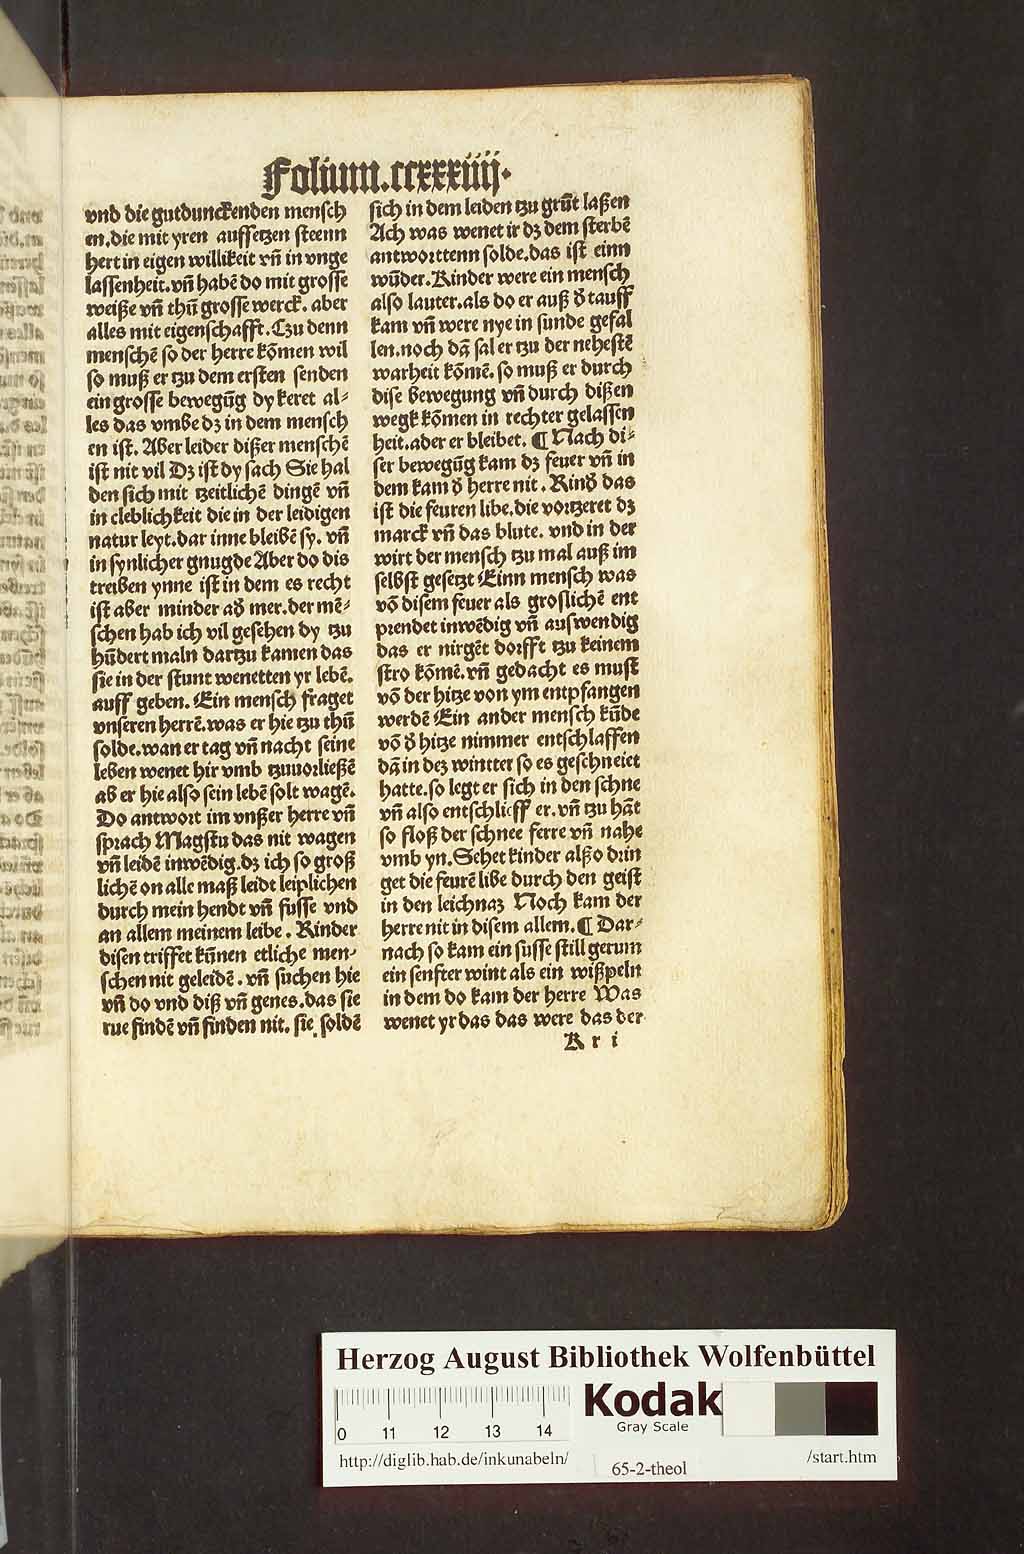 Folium.ccxxxiiij.
vnd die gutdunckenden mensch
en.die mit yren auffsetzen steenn
hert in eigen willikeit vn̄ in vnge
lassenheit.vn̄ habē do mit grosse
weiße vn̄ thū grosse werck. aber
alles mit eigenschafft. Czu denn
menschē so der herre kōmen wil
so muß er tzu dem ersten senden
ein grosse bewegūg dy keret al⸗
les das vmbe dz in dem mensch
en ist. Aber leider dißer menschē
ist nit vil Dz ist dy sach Sie hal
den sich mit tzeitlichē dingē vn̄
in cleblichkeit die in der leidigen
natur leyt.dar inne bleibē sy. vn̄
in synlicher gnugde Aber do dis
treiben ynne ist in dem es recht
ist aber minder ad̕ mer.der mē⸗
schen hab ich vil gesehen dy tzu
hūdert maln dartzu kamen das
sie in der stunt wenetten yr lebē.
auff geben. Ein mensch fraget
vnseren herrē.was er hie tzu thū
solde.wan er tag vn̄ nacht seine
leben wenet hir vmb tzuuorließē
ab er hie also sein lebē solt wagē.
Do antwort im vnßer herre vn̄
sprach Magstu das nit wagen
vn̄ leidē inwēdig.dz ich so groß
lichē on alle maß leidt leiplichen
durch mein hendt vn̄ fusse vnd
an allem meinem leibe. Kinder
disen triffet kūnen etliche men⸗
schen nit geleidē. vn̄ suchen hie
vn̄ do vnd diß vn̄ genes.das sie
rue findē vn̄ finden nit. sie soldē
sich in dem leiden tzu grūt laßen
Ach was wenet ir dz dem sterbē
antworttenn solde.das ist einn
wūder. Kinder were ein mensch
also lauter.als do er auß d̕ tauff
kam vn̄ were nye in sunde gefal
len.noch dā sal er tzu der nehestē
warheit kōmē. so muß er durch
dise bewegung vn̄ durch dißen
wegk kōmen in rechter gelassen
heit.ader er bleibet. ¶ Nach di⸗
ser bewegūg kam dz feuer vn̄ in
dem kam d̕ herre nit. Kind̕ das
ist die feuren libe.die vortzeret dz
marck vn̄ das blute. vnd in der
wirt der mensch tzu mal auß im
selbst gesetzt Einn mensch was
vō disem feuer als groslichē ent
prendet inwēdig vn̄ auswendig
das er nirgēt dorfft tzu keinem
stro kōmē.vn̄ gedacht es must
vō der hitze von ym entpfangen
werdē Ein ander mensch kūde
vō d̕ hitze nimmer entschlaffen
dā in dez wintter so es geschneiet
hatte.so legt er sich in den schne
vn̄ also entschlieff er.vn̄ tzu hāt
so floß der schnee ferre vn̄ nahe
vmb yn.Sehet kinder alßo drin
get die feurē libe durch den geist
in den leichnaz Noch kam der
herre nit in disem allem.¶ Dar⸗
nach so kam ein susse still gerum
ein senfter wint als ein wißpeln
in dem do kam der herre Was
wenet yr das das were das der
K r i
Herzog August Bibliothek Wolfenbüttel
0 11 12 13 14
Kodak
Gray Scale
http://diglib.hab.de/inkunabeln/
65-2-theol
/start.htm